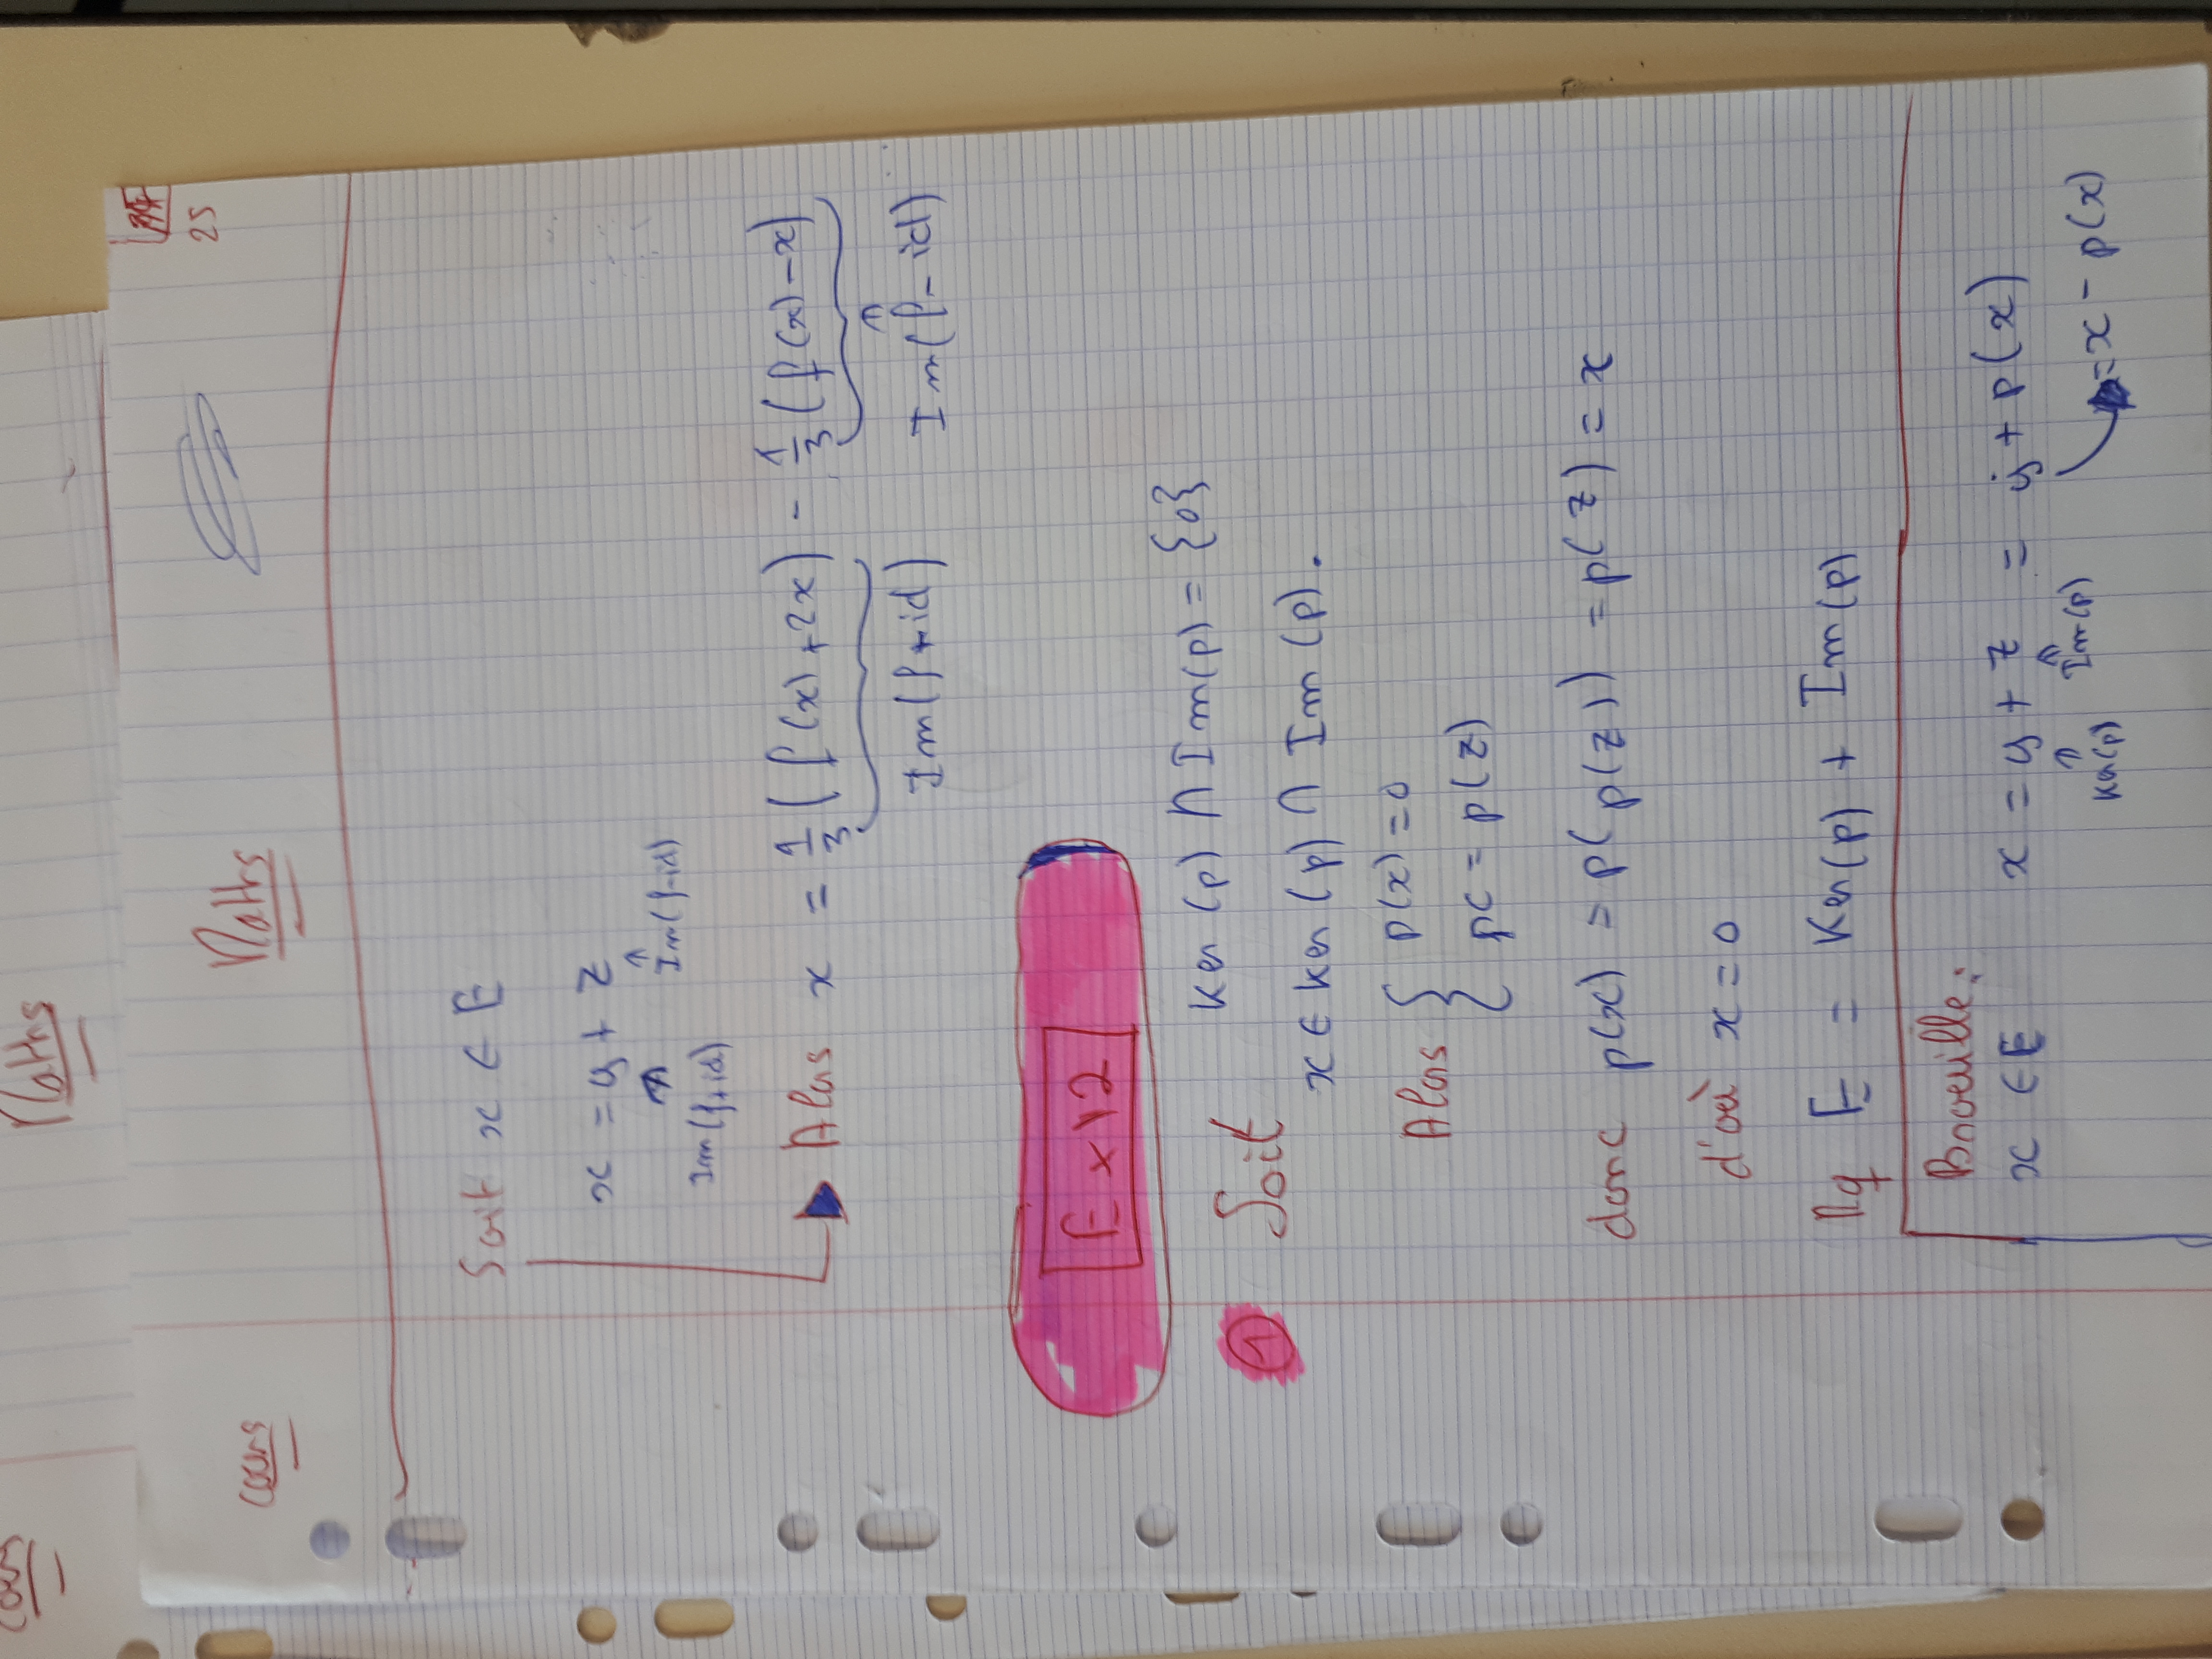 Maths
Cours
Maths
25
Soit x ∈ E
x = y + z
Im(f+id) Im(f-id)
Alors x = 1/3 (f(x) + 2x) - 1/3 (f(x) - x)
Im(f+id) ∈ Im(f-id)
Ex 12
① Ker(p) ∩ Im(p) = {0}
Soit x ∈ Ker(p) ∩ Im(p).
Alors { p(x) = 0
x = p(z)
donc p(x) = p(p(z)) = p(z) = x
d'où x = 0
Mq E = Ker(p) + Im(p)
Brouille :
x ∈ E x = y + z = y + p(x)
∈ Ker(p) ∈ Im(p) = x - p(x)